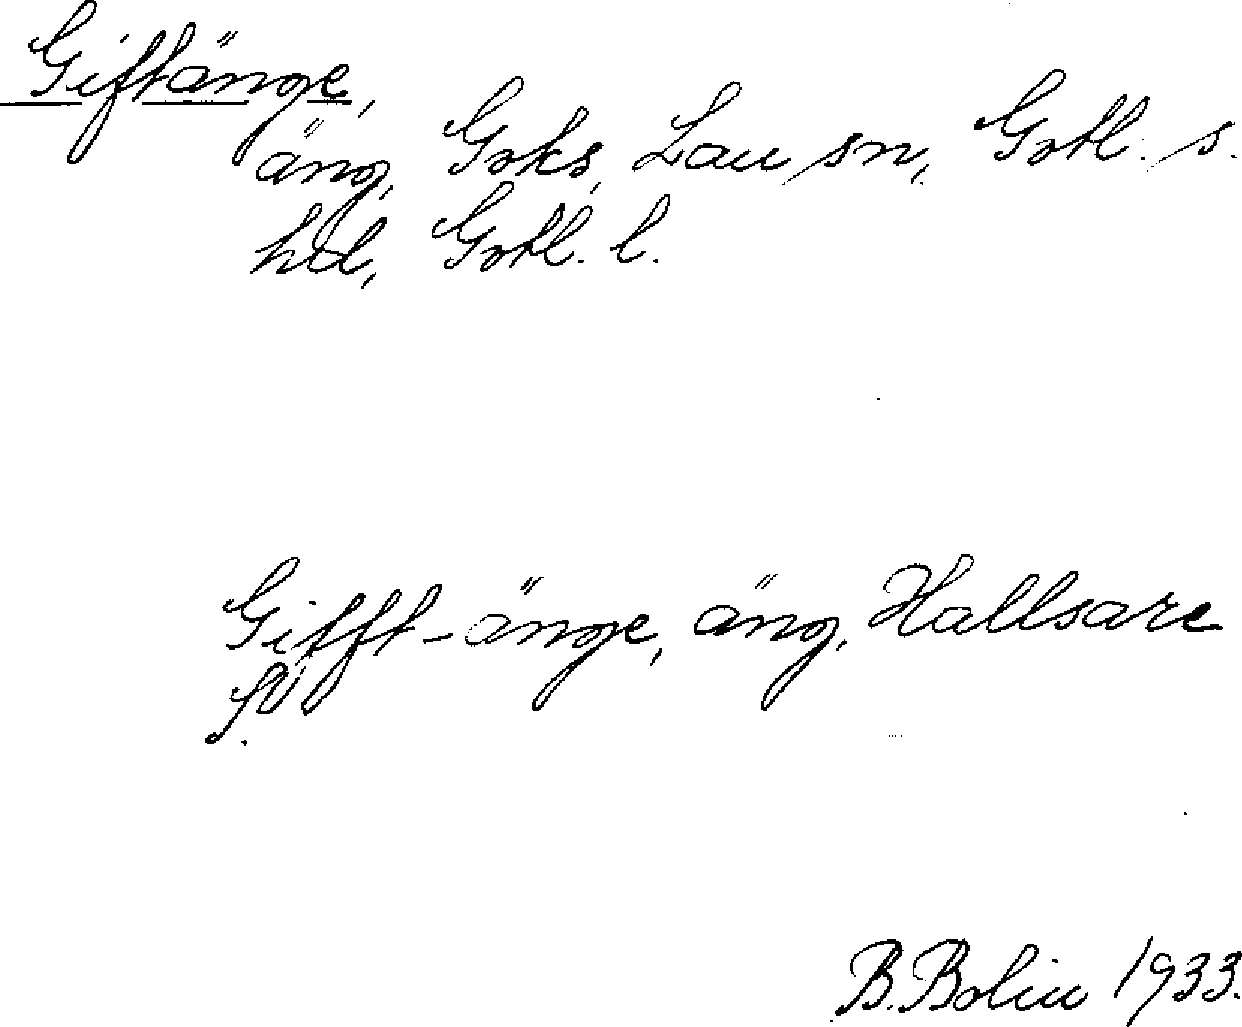 Giftänge,
äng, Goks, Lau sn, Gotl. s.
hd, Gotl. l.
Gifft-änge, äng, Hallsare
B. Bolin 1933.